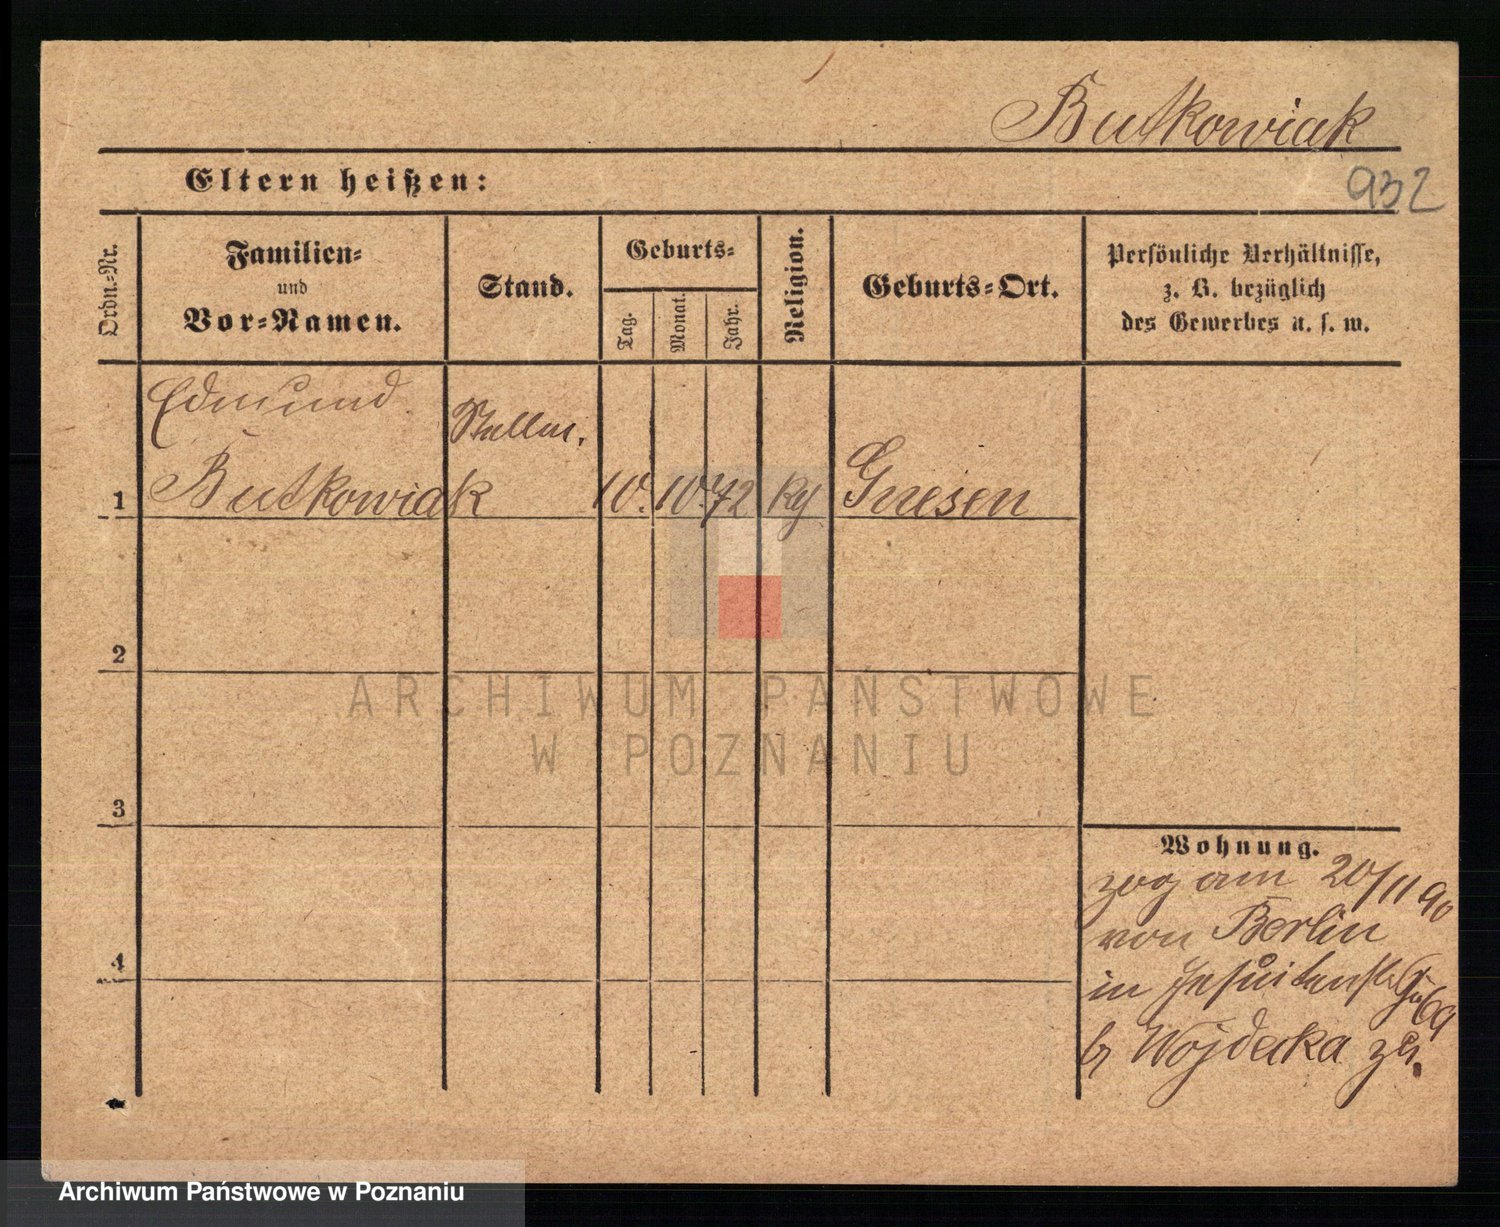 Butkowiak
932
Eltern heißen:
Ordn.-Nr.
Familien-
und
Vor-Namen.
Stand.
Geburts-
Tag.
Monat.
Jahr.
Religion.
Geburts-Ort.
Persönliche Verhältnisse,
z. B. bezüglich
des Gewerbes u. s. w.
Edmund
1 Butkowiak 10. 10. 72 kg Gnesen
2
3
4
Wohnung.
zog am 20/11 90
von Berlin
in Jesuitenstr.
b Wojdecka zu.
ARCHIWUM PAŃSTWOWE
W POZNANIU
Archiwum Państwowe w Poznaniu